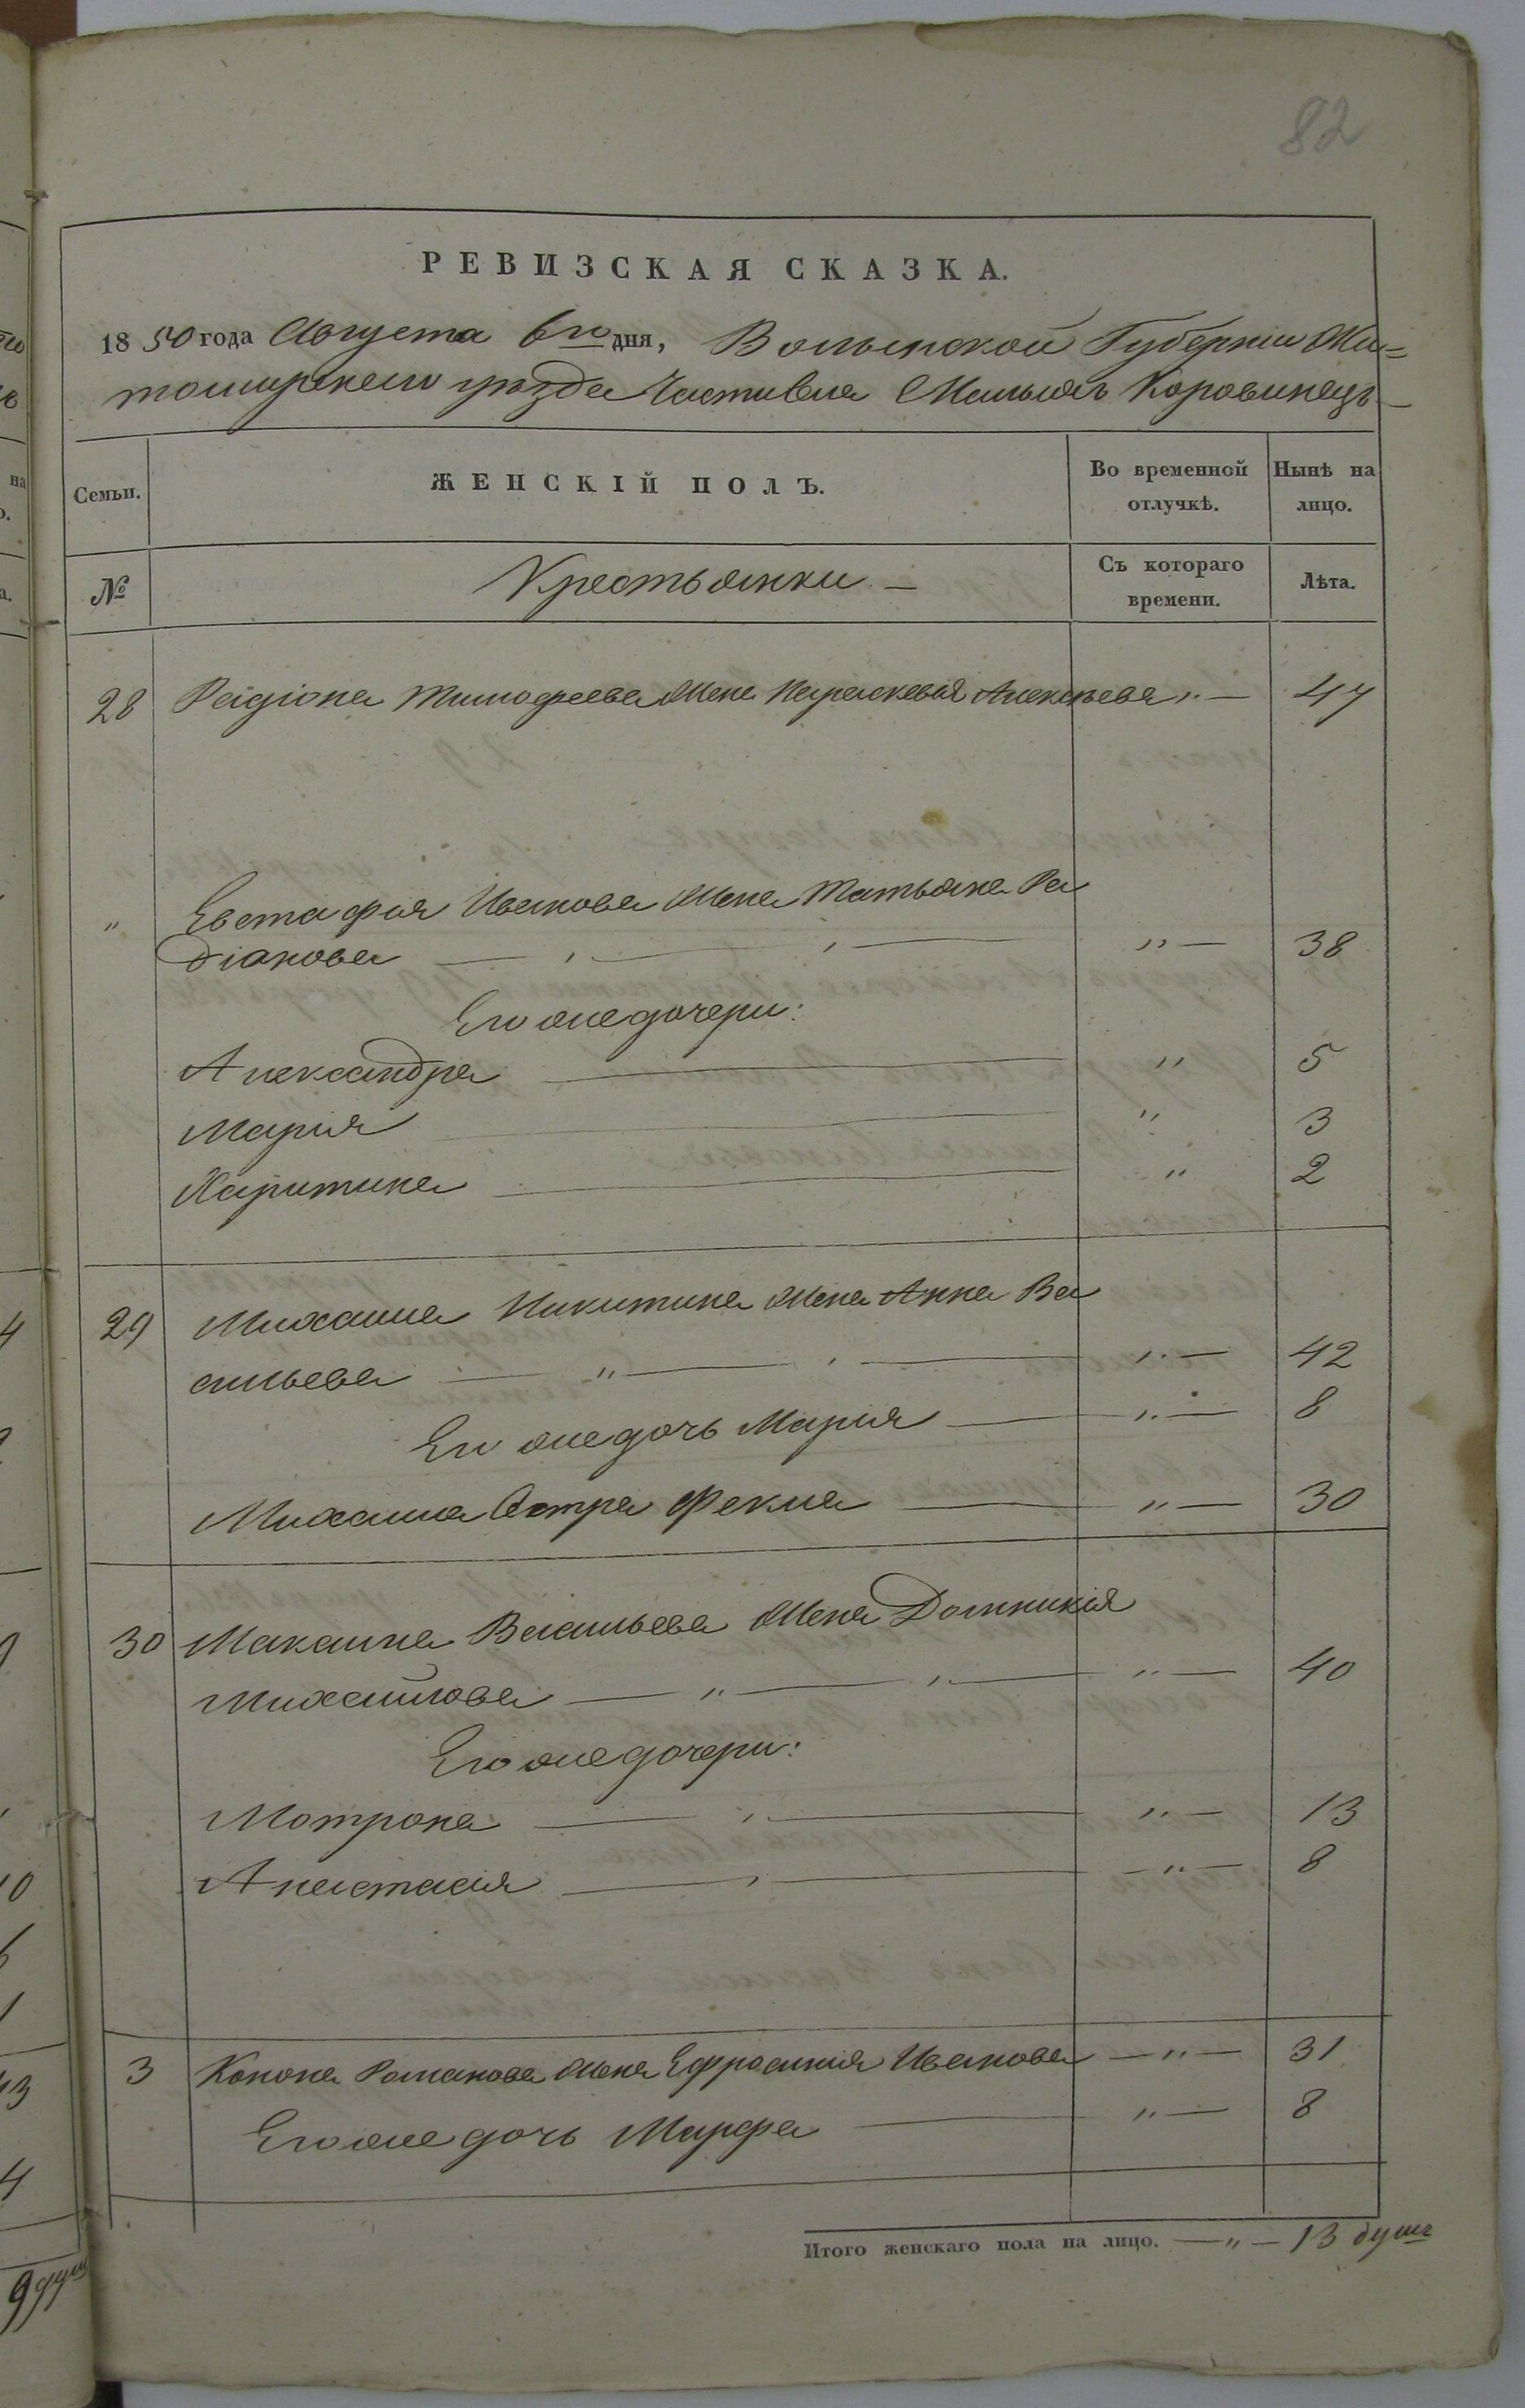 82
РЕВИЗСКАЯ СКАЗКА.
1850 года Августа 6го дня, Волынской Губерніи Жи=
томирскаго уѣзда Малыхъ Коровинецъ
Семьи.
ЖЕНСКІЙ ПОЛЪ.
Во временной отлучкѣ.
Нынѣ на лицо.
№
Крестьянки —
Съ котораго времени.
Лѣта.
28 Радіона Тимофеева жена Параскевія Алексѣева „ — 47
„ Евстафія Иванова жена Татьяна Ра
діонова — „ — 38
Его же дочери:
Александра — „ 5
Марія — „ 3
Харитина — „ 2
29 Михаила Никитина жена Анна Ва
сильева — „ — „ — 42
Его же дочь Марія — „ — 8
Михаила сестра Фекла — „ — 30
30 Васильева жена Домникія
Михайлова — „ — „ — 40
Его же дочери:
Мотрона — „ — 13
Анастасія — „ — 8
3 Конона Романова жена Ефросинія Иванова — „ — 31
Его же дочь Марфа — „ — 8
Итого женскаго пола на лицо. — „ — 13 душъ